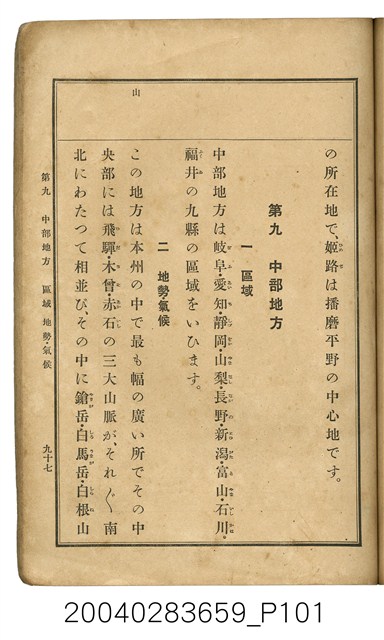 の所在地で、姬路は播磨平野の中心地です。
第九 中部地方
一 區域
中部地方は岐阜・愛知・靜岡・山梨・長野・新潟・富山・石川・
福井の九縣の區域をいひます。
二 地勢氣候
この地方は本州の中で最も幅の廣い所でその中
央部には飛驒・木曾・赤石の三大山脈が、それ〲南
北にわたつて相並び、その中に鎗岳・白馬岳・白根山
山
第九 中部地方 區域 地勢・氣候 九十七
20040283659_P101